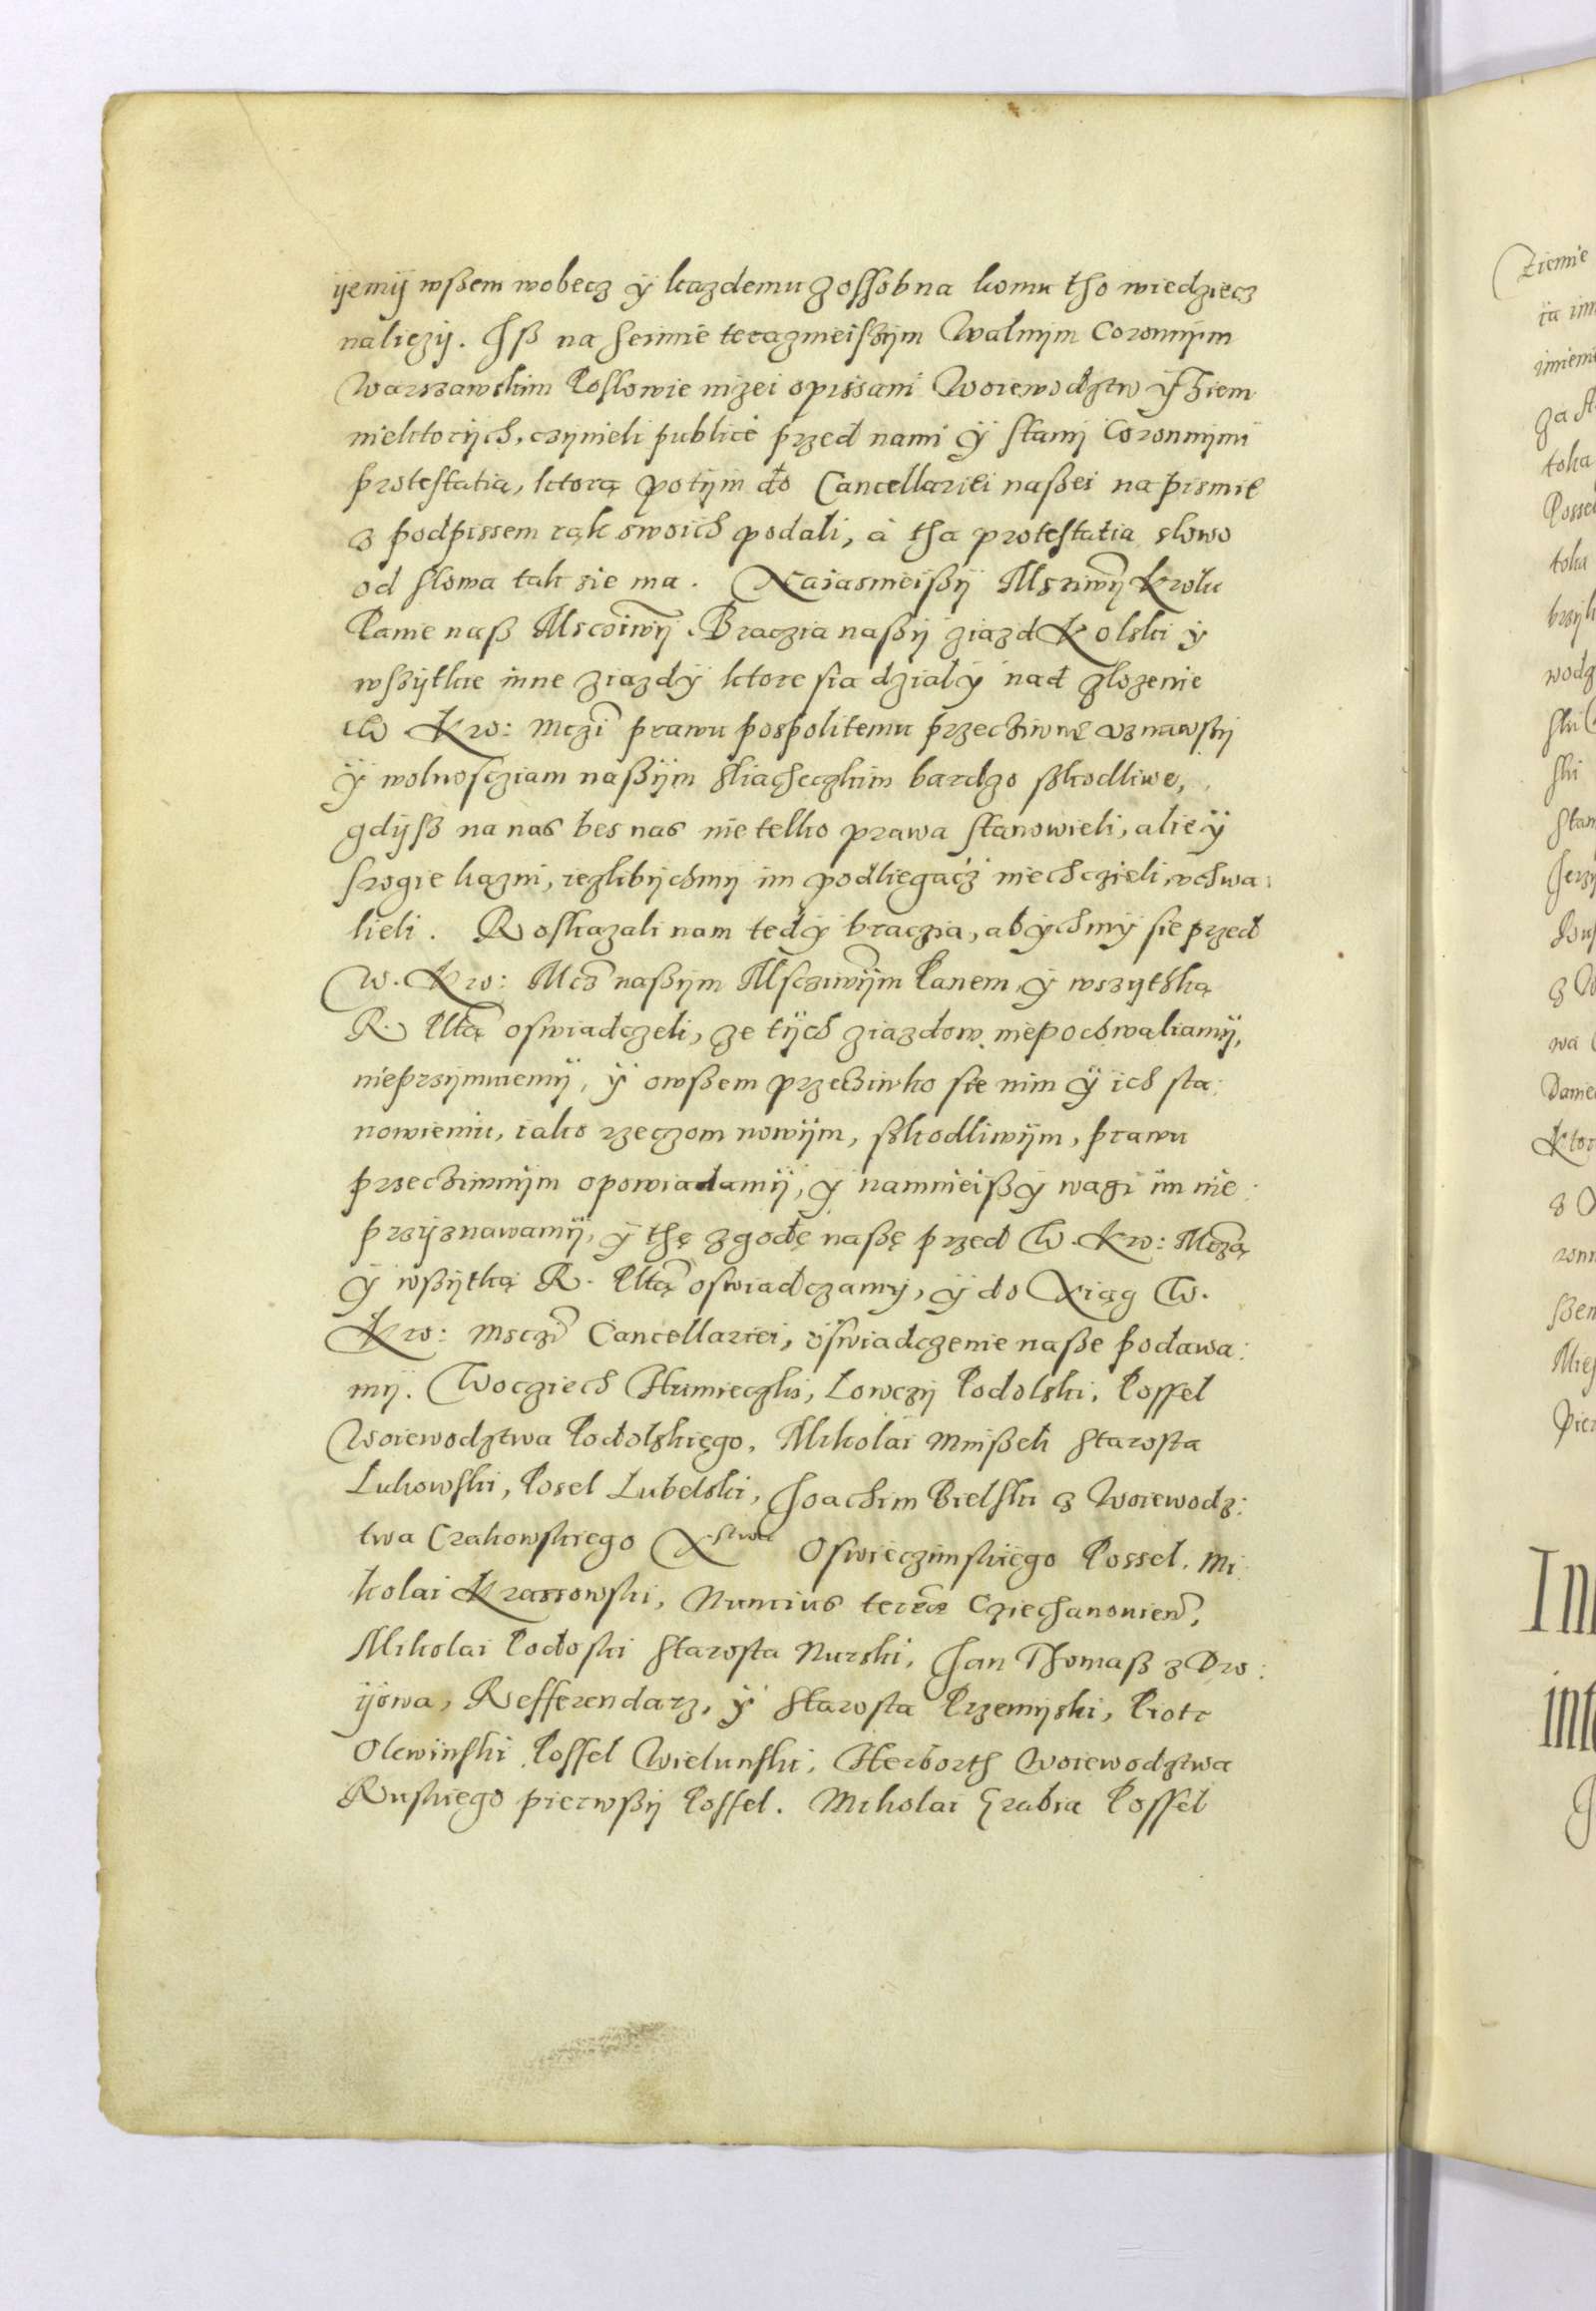 ÿemÿ wßem wobecz ÿ kazdemu zossobna komu tho wiedziecz
naliezÿ. Iß na seimie terazneißÿm Walnÿm Coronnÿm
Warszawskim Posłowie nizei opissani Woiewodztw ÿ Ziem
niektorÿch, czÿnieli publice przed nami ÿ stany Coronnÿmi
protestatia, ktorą potÿm do Cancellariei naßei na pismie
z podpissem rąk swoich podali, a tha protestatia slowo
od słowa tak sie ma. Naiasnieißÿ Msciwÿ Krolu
Panie naß Mscoiwÿ Braczia naßÿ ziazd Kolski ÿ
wßÿtkie inne ziazdÿ ktore sia działÿ nad zlozenie
W Kro: Mczi prawu pospolitemu przecziwne uznawßÿ
ÿ wolnosciam naßÿm sliacheczkim bardzo sskodliwe,
gdÿsz na nas bes nas nie telko prawa stanowieli, alie ÿ
srogie kazni, iezlibÿchmÿ im podliegacz niechczieli, uchwa:
lieli. Roskazali nam tedÿ braczia, abÿchmÿ sie przed
W. Kro: Mcz naßÿm Msciwÿm Panem, ÿ wszytską
R. Pltą oswiadczeli, ze tÿch ziazdow niepochwaliamÿ,
nieprzÿmuiemÿ, ÿ owßem przeciwko sie nim ÿ ich sta:
nowieniu, iako rzeczom nowÿm, sskodliwÿm, prawu
przeciwnÿm opowiadamÿ, ÿ namnieißÿ wagi im nie:
przÿznawamÿ, ÿ thę zgodę naßę przed W. Kro: Mczą
ÿ wßÿtką R. Pltą oswiadczamy, ÿ do Xiąg W.
Kro: Msczi Cancellariei, oswiadczenie naße podawa:
mÿ. Wocziech Humieczki, Lowczÿ Podolski, Possel
Woiewodztwa Podolskiego, Mikolai Mnißek Starosta
Lukowski, Posel Lubelski, Joachim Bielski z Woiewodz:
twa Crakowskiego Xstwa Oswieczimskiego Possel. Mi:
kolai Krassowski, Nuncius terræ Cziechanovien,
Mikolai Podoski Starosta Nurski, Jan Thomaß z Dro:
ÿowa, Refferendarz, ÿ Starosta Przemÿski, Piotr
Olewinski Possel Wielunski, Herborth Woiewodztwa
Ruskiego pierwßÿ Possel. Mikolai Grabia Possel